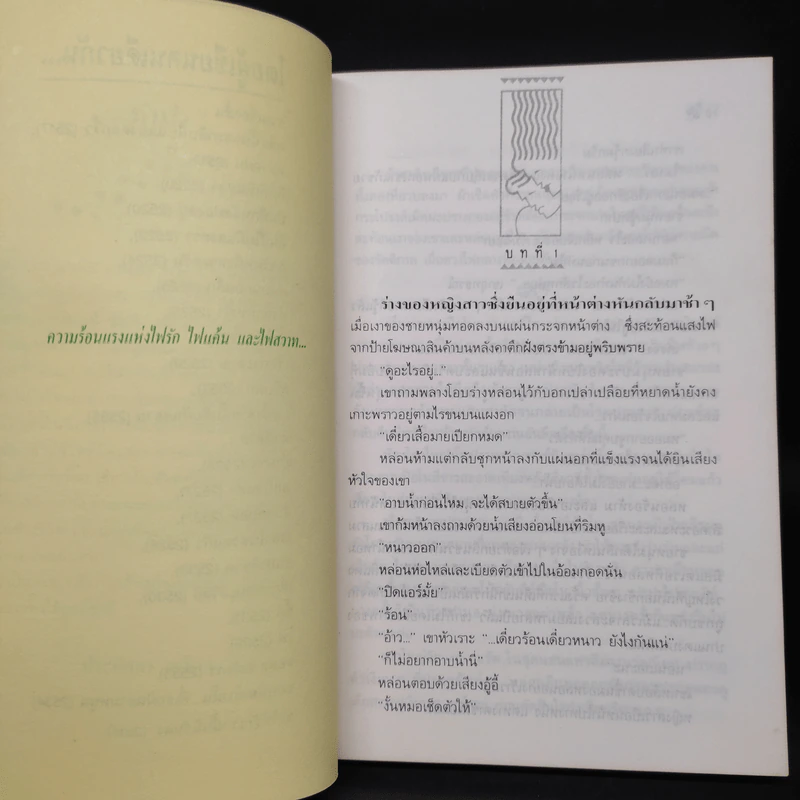 ความร้อนแรงแห่งไฟรัก ไฟแค้น และไฟสวาท...
บทที่ 1
ร่างของหญิงสาวซึ่งยืนอยู่ที่หน้าต่างหันกลับมาช้า ๆ
เมื่อเงาของชายหนุ่มทอดลงบนแผ่นกระจกหน้าต่าง ซึ่งสะท้อนแสงไฟ
จากป้ายโฆษณาสินค้าบนหลังคาตึกฝั่งตรงข้ามอยู่พริบพราย
“ดูอะไรอยู่...”
เขาถามพลางโอบร่างหล่อนไว้กับอกเปล่าเปลือยที่หยาดน้ำยังคง
เกาะพราวอยู่ตามไรขนบนแผงอก
“เดี๋ยวเสื้อมายเปียกหมด”
หล่อนห้ามแต่กลับซุกหน้าลงกับแผ่นอกที่แข็งแรงจนได้ยินเสียง
หัวใจของเขา
“อาบน้ำก่อนไหม จะได้สบายตัวขึ้น”
เขาก้มหน้าลงถามด้วยน้ำเสียงอ่อนโยนที่ริมหู
“หนาวออก”
หล่อนห่อไหล่และเบียดตัวเข้าไปในอ้อมกอดนั่น
“ปิดแอร์มั้ย”
“ร้อน”
“อ้าว...” เขาหัวเราะ “...เดี๋ยวร้อนเดี๋ยวหนาว ยังไงกันแน่”
“ก็ไม่อยากอาบน้ำนี่”
หล่อนตอบด้วยเสียงอู้อี้
“งั้นหมอเช็ดตัวให้”